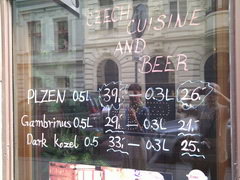 CZECH CUISINE
AND
BEER
PLZEN 0.5L 39,- — 0.3L 26.-
Gambrinus 0.5L 29,- — 0.3L 21.-
Dark Kozel 0.5 33,- — 0.3L 25.-